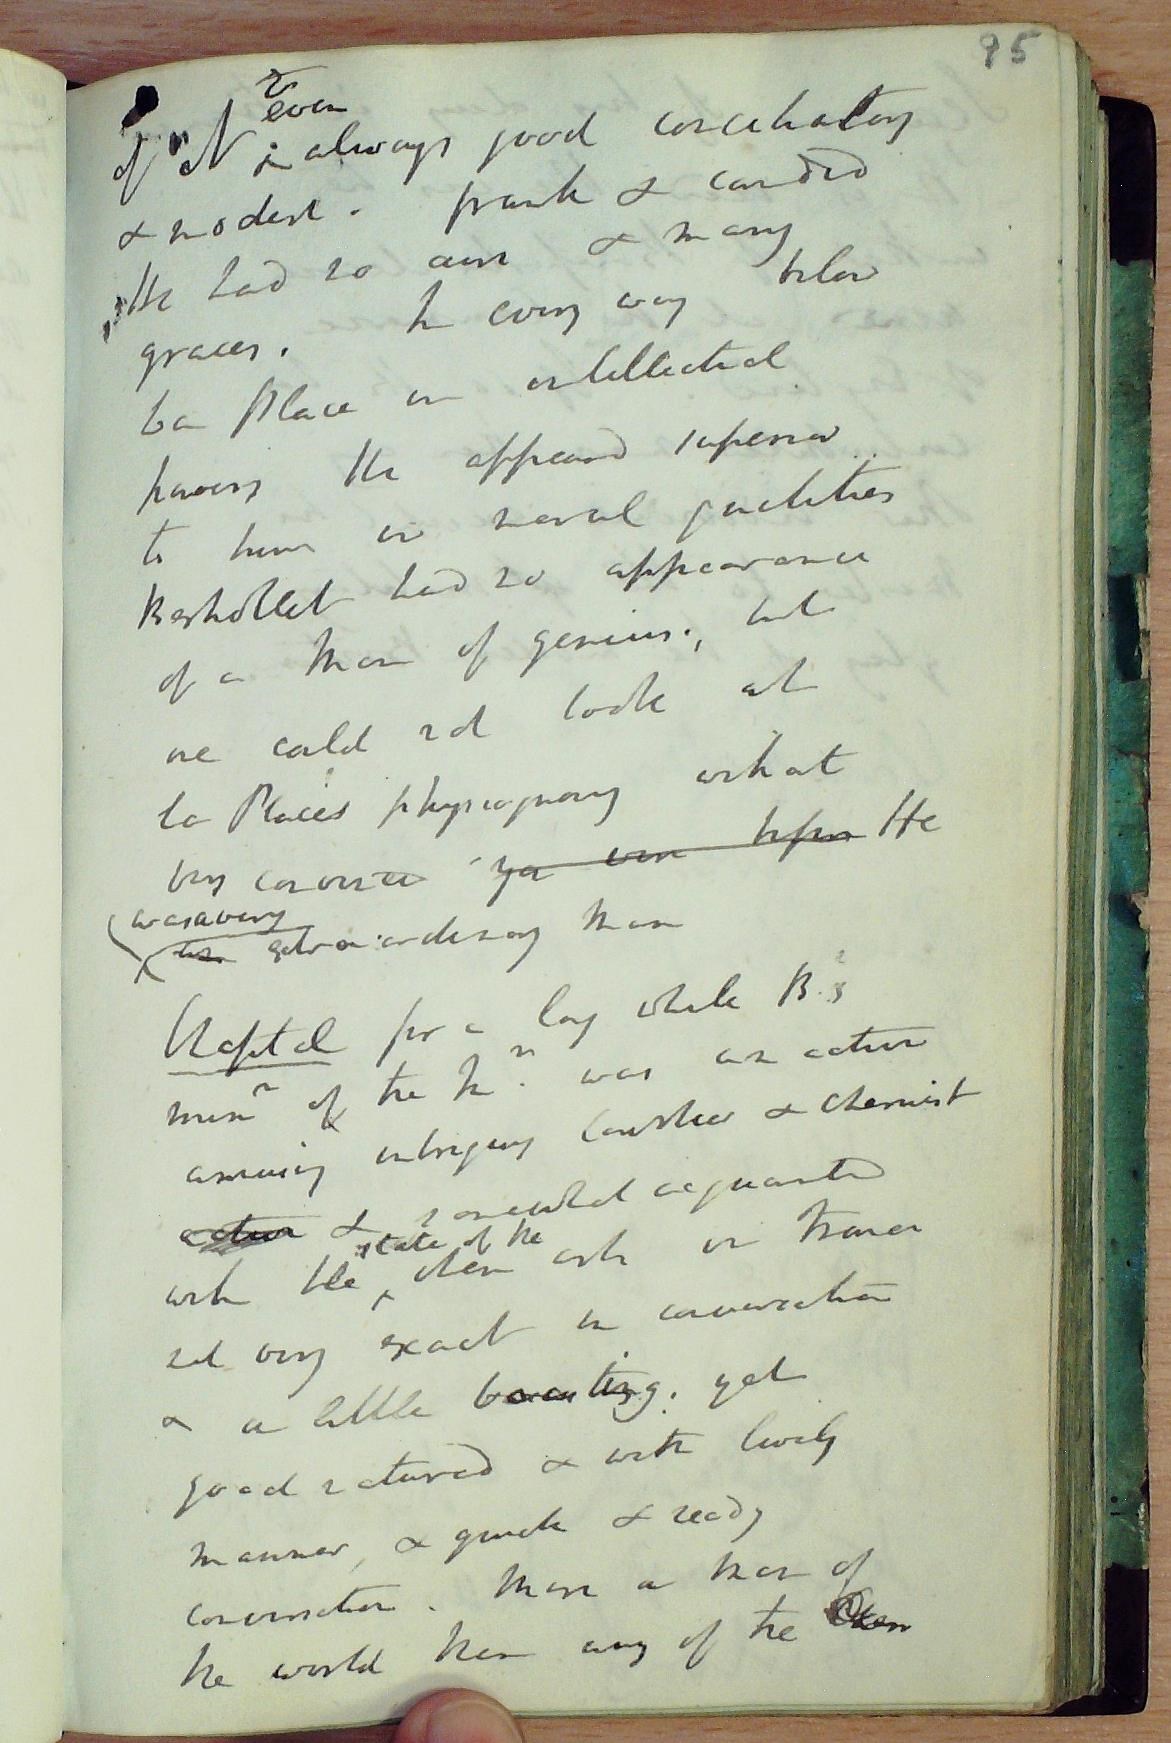 95
of N even
always good conciliatory
& modest. frank & candid
He had no airs & many
graces. In every way below
La Place in intellectual
powers He appeared superior
to him in moral qualities
Berthollet had no appearance
of a Man of genius; but
one could not look at
La Places physiognomy without
being convinced He
was a very
extraordinary Man
Chaptal for a long while B's
minr of the In was an active
amusing intriguing Courtier & Chemist
& somewhat acquainted
with the state of the
chem arts in France
not very exact in conversation
& a little boasting. yet
good natured & with lively
manner, & quick & ready
conversation. More a man of
the world than any of the Chem